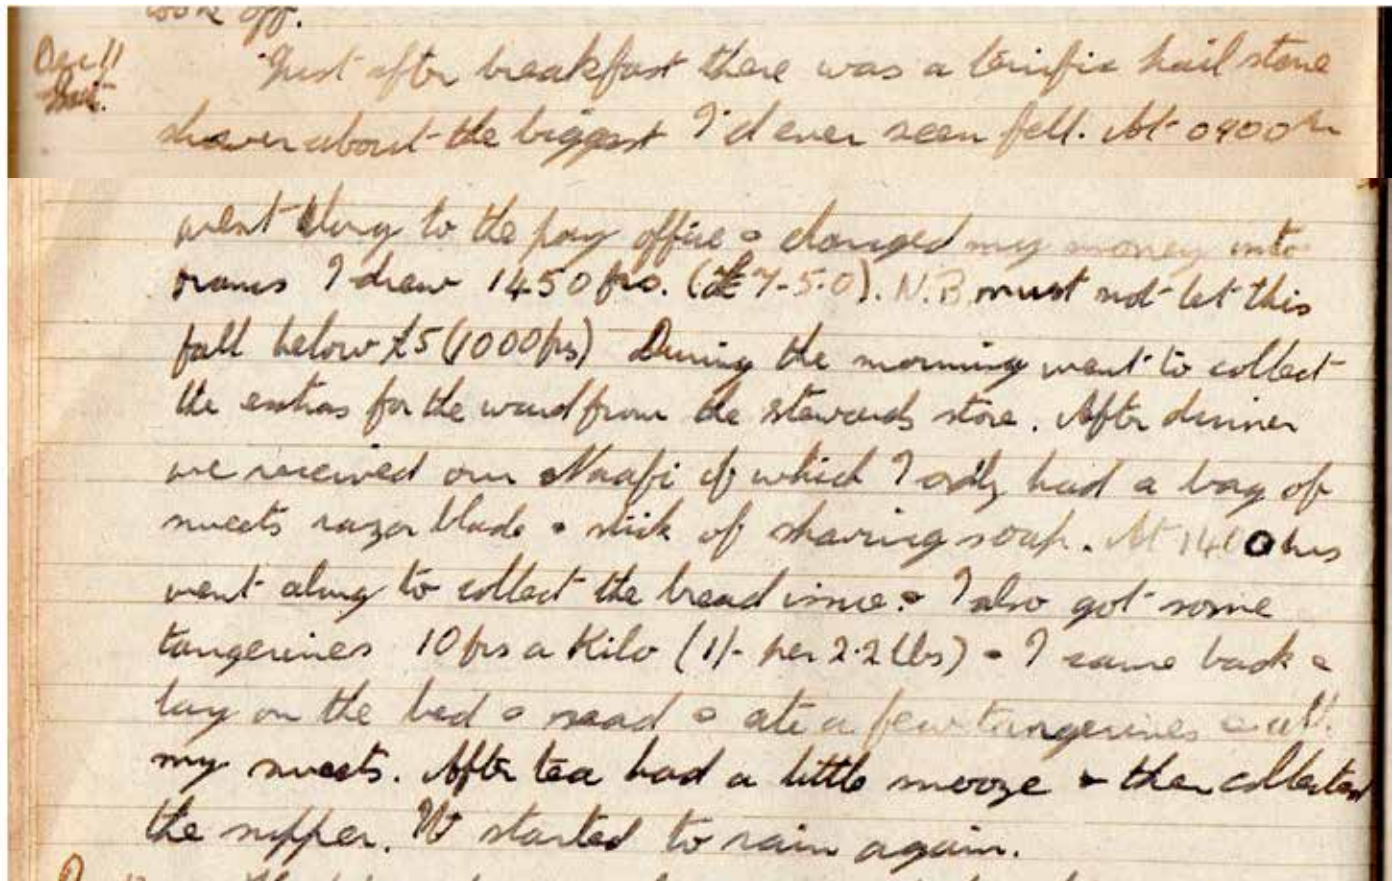 look off.
Dec 11 Sat. Just after breakfast there was a terrific hail stone
shower about the biggest I'd ever seen fell. At 0900 hr
went along to the pay office & changed my money into
francs I drew 1450 frs. (£7-5-0). N.B. must not let this
fall below £5 (1000 frs) During the morning went to collect
the extras for the ward from the stewards store. After dinner
we received our Naafi of which I only had a bag of
sweets razor blade & stick of shaving soap. At 1400 hrs
went along to collect the bread issue. & I also got some
tangerines 10 frs a Kilo (1/- per 2.2 lbs) & I came back &
lay on the bed & read & ate a few tangerines & all
my sweets. After tea had a little snooze & then collected
the supper. It started to rain again.